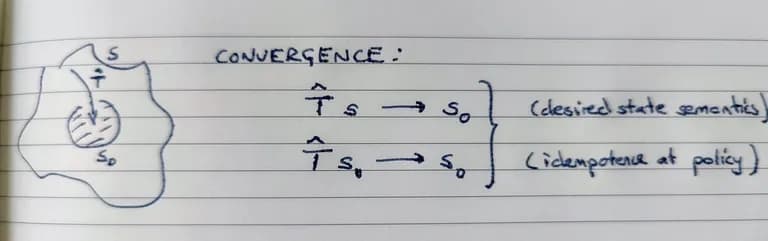 S
T̂
S₀
CONVERGENCE :
T̂ S → S₀ } (desired state semantics)
T̂ S₀ → S₀ } (idempotence at policy)